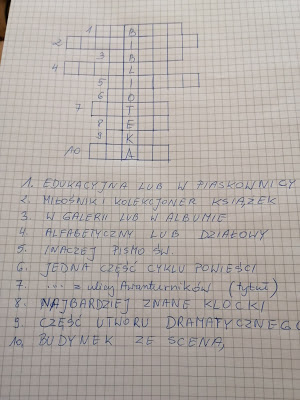 1 B
2 I
3 B
4 L
5 I
6 O
7 T
8 E
9 K
10 A
1. EDUKACYJNA LUB W PIASKOWNICY
2. MIŁOŚNIK I KOLEKCJONER KSIĄŻEK
3. W GALERII LUB W ALBUMIE
4. ALFABETYCZNY LUB DZIAŁOWY
5. INACZEJ PISMO ŚW.
6. JEDNA CZĘŚĆ CYKLU POWIEŚCI
7. .... z ulicy Awanturników (tytuł)
8. NAJBARDZIEJ ZNANE KLOCKI
9. CZĘŚĆ UTWORU DRAMATYCZNEGO
10. BUDYNEK ZE SCENĄ,